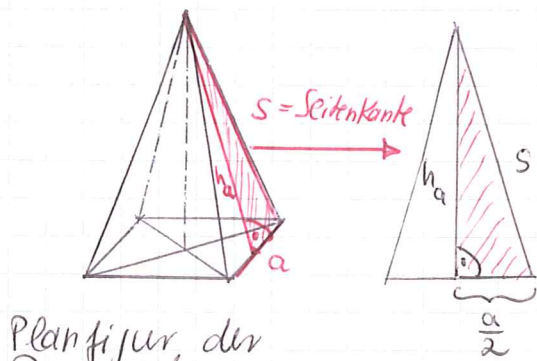 S = Seitenkante
h_a
a
h_a
S
a
2
Planfigur, der